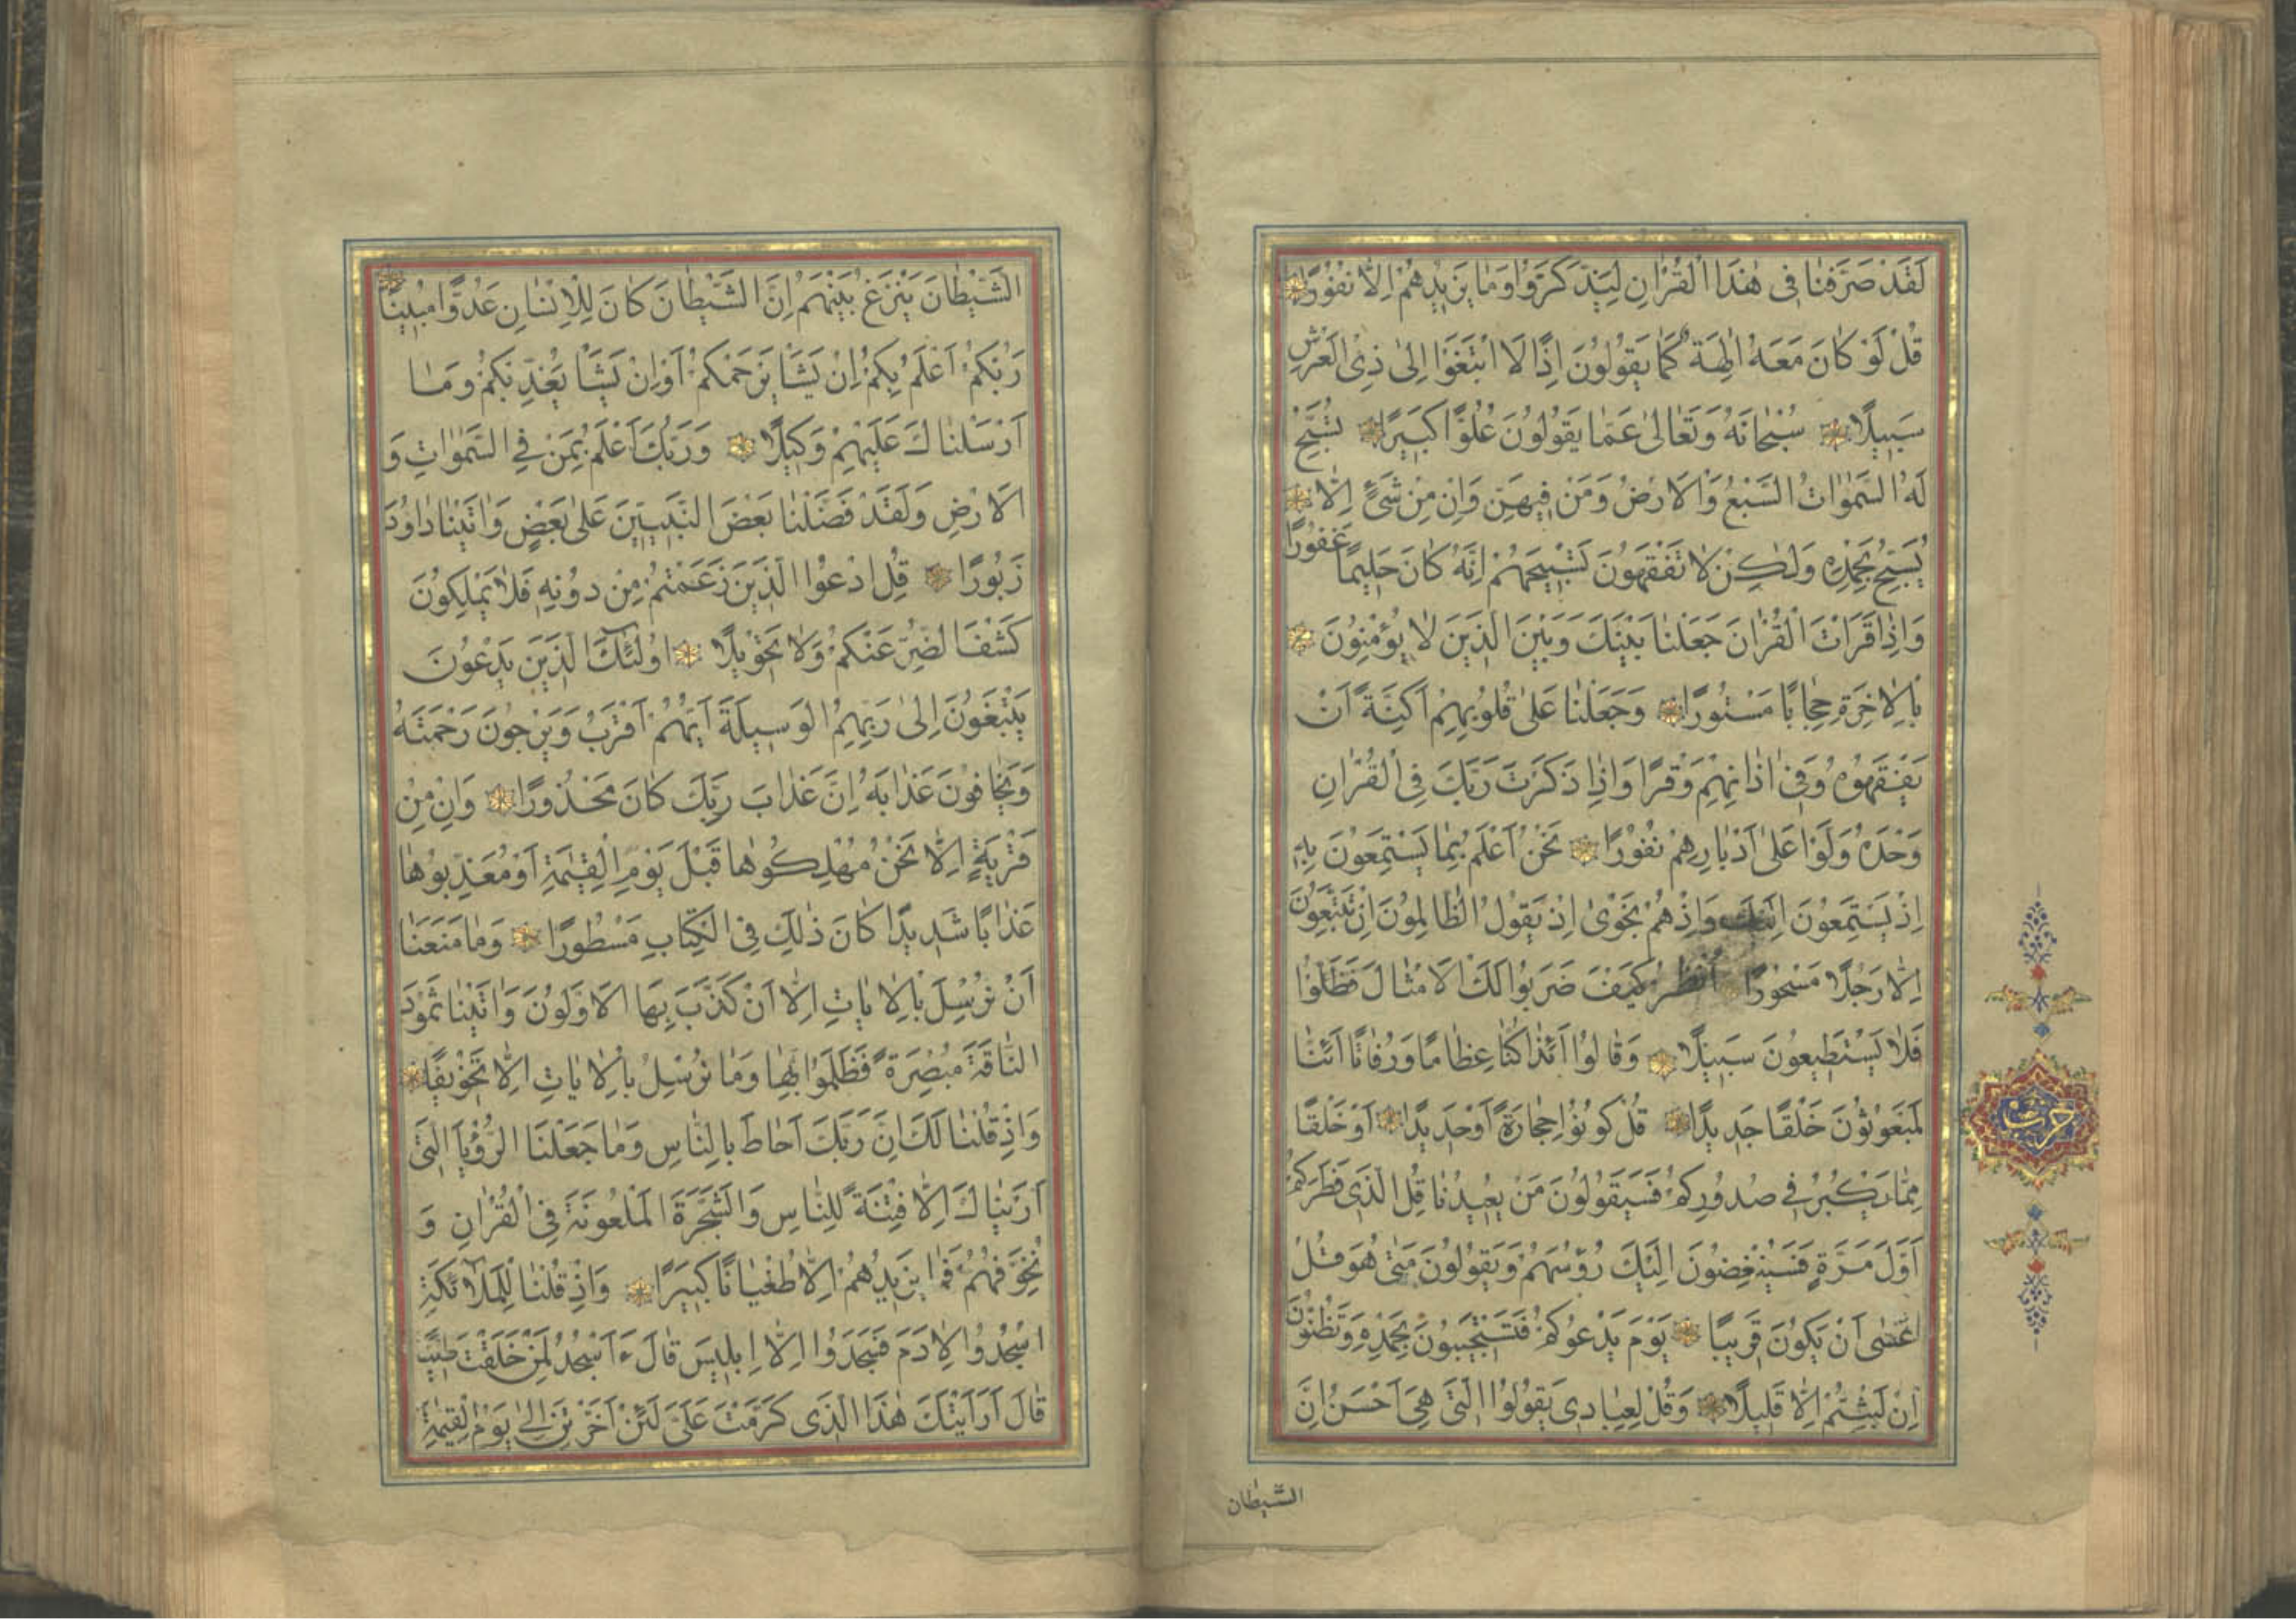 لَقَدْ صَرَّفْنَا فِى هٰذَا الْقُرْاٰنِ لِيَذَّكَّرُوا وَمَا يَزِيدُهُمْ اِلَّا نُفُورًا
قُلْ لَوْ كَانَ مَعَهُ اٰلِهَةٌ كَمَا يَقُولُونَ اِذًا لَا ابْتَغَوْا اِلىٰ ذِى الْعَرْشِ
سَبِيلًا سُبْحَانَهُ وَتَعَالىٰ عَمَّا يَقُولُونَ عُلُوًّا كَبِيرًا تُسَبِّحُ
لَهُ السَّمٰوَاتُ السَّبْعُ وَالْاَرْضُ وَمَنْ فِيهِنَّ وَاِنْ مِنْ شَىْءٍ اِلَّا
يُسَبِّحُ بِحَمْدِهِ وَلٰكِنْ لَا تَفْقَهُونَ تَسْبِيحَهُمْ اِنَّهُ كَانَ حَلِيمًا غَفُورًا
وَاِذَا قَرَاْتَ الْقُرْاٰنَ جَعَلْنَا بَيْنَكَ وَبَيْنَ الَّذِينَ لَا يُؤْمِنُونَ
بِالْاٰخِرَةِ حِجَابًا مَسْتُورًا وَجَعَلْنَا عَلىٰ قُلُوبِهِمْ اَكِنَّةً اَنْ
يَفْقَهُوهُ وَفِى اٰذَانِهِمْ وَقْرًا وَاِذَا ذَكَرْتَ رَبَّكَ فِى الْقُرْاٰنِ
وَحْدَهُ وَلَّوْا عَلىٰ اَدْبَارِهِمْ نُفُورًا نَحْنُ اَعْلَمُ بِمَا يَسْتَمِعُونَ بِهِ
اِذْ يَسْتَمِعُونَ اِلَيْكَ وَاِذْ هُمْ نَجْوىٰ اِذْ يَقُولُ الظَّالِمُونَ اِنْ تَتَّبِعُونَ
اِلَّا رَجُلًا مَسْحُورًا اُنْظُرْ كَيْفَ ضَرَبُوا لَكَ الْاَمْثَالَ فَضَلُّوا
فَلَا يَسْتَطِيعُونَ سَبِيلًا وَقَالُوا اَئِذَا كُنَّا عِظَامًا وَرُفَاتًا اَئِنَّا
لَمَبْعُوثُونَ خَلْقًا جَدِيدًا قُلْ كُونُوا حِجَارَةً اَوْ حَدِيدًا اَوْ خَلْقًا
مِمَّا يَكْبُرُ فِى صُدُورِكُمْ فَسَيَقُولُونَ مَنْ يُعِيدُنَا قُلِ الَّذِى فَطَرَكُمْ
اَوَّلَ مَرَّةٍ فَسَيُنْغِضُونَ اِلَيْكَ رُؤُسَهُمْ وَيَقُولُونَ مَتىٰ هُوَ قُلْ
عَسٰى اَنْ يَكُونَ قَرِيبًا يَوْمَ يَدْعُوكُمْ فَتَسْتَجِيبُونَ بِحَمْدِهِ وَتَظُنُّونَ
اِنْ لَبِثْتُمْ اِلَّا قَلِيلًا وَقُلْ لِعِبَادِى يَقُولُوا الَّتِى هِىَ اَحْسَنُ اِنَّ
الشَّيْطَان
حزب
الشَّيْطَانَ يَنْزَغُ بَيْنَهُمْ اِنَّ الشَّيْطَانَ كَانَ لِلْاِنْسَانِ عَدُوًّا مُبِينًا
رَبُّكُمْ اَعْلَمُ بِكُمْ اِنْ يَشَاْ يَرْحَمْكُمْ اَوْ اِنْ يَشَاْ يُعَذِّبْكُمْ وَمَا
اَرْسَلْنَاكَ عَلَيْهِمْ وَكِيلًا وَرَبُّكَ اَعْلَمُ بِمَنْ فِى السَّمٰوَاتِ وَ
الْاَرْضِ وَلَقَدْ فَضَّلْنَا بَعْضَ النَّبِيِّينَ عَلىٰ بَعْضٍ وَاٰتَيْنَا دَاوُدَ
زَبُورًا قُلِ ادْعُوا الَّذِينَ زَعَمْتُمْ مِنْ دُونِهِ فَلَا يَمْلِكُونَ
كَشْفَ الضُّرِّ عَنْكُمْ وَلَا تَحْوِيلًا اُولٰئِكَ الَّذِينَ يَدْعُونَ
يَبْتَغُونَ اِلىٰ رَبِّهِمُ الْوَسِيلَةَ اَيُّهُمْ اَقْرَبُ وَيَرْجُونَ رَحْمَتَهُ
وَيَخَافُونَ عَذَابَهُ اِنَّ عَذَابَ رَبِّكَ كَانَ مَحْذُورًا وَاِنْ مِنْ
قَرْيَةٍ اِلَّا نَحْنُ مُهْلِكُوهَا قَبْلَ يَوْمِ الْقِيٰمَةِ اَوْ مُعَذِّبُوهَا
عَذَابًا شَدِيدًا كَانَ ذٰلِكَ فِى الْكِتَابِ مَسْطُورًا وَمَا مَنَعَنَا
اَنْ نُرْسِلَ بِالْاٰيَاتِ اِلَّا اَنْ كَذَّبَ بِهَا الْاَوَّلُونَ وَاٰتَيْنَا ثَمُودَ
النَّاقَةَ مُبْصِرَةً فَظَلَمُوا بِهَا وَمَا نُرْسِلُ بِالْاٰيَاتِ اِلَّا تَخْوِيفًا
وَاِذْ قُلْنَا لَكَ اِنَّ رَبَّكَ اَحَاطَ بِالنَّاسِ وَمَا جَعَلْنَا الرُّؤْيَا الَّتِى
اَرَيْنَاكَ اِلَّا فِتْنَةً لِلنَّاسِ وَالشَّجَرَةَ الْمَلْعُونَةَ فِى الْقُرْاٰنِ وَ
نُخَوِّفُهُمْ فَمَا يَزِيدُهُمْ اِلَّا طُغْيَانًا كَبِيرًا وَاِذْ قُلْنَا لِلْمَلٰٓائِكَةِ
اسْجُدُوا لِاٰدَمَ فَسَجَدُوا اِلَّا اِبْلِيسَ قَالَ ءَاَسْجُدُ لِمَنْ خَلَقْتَ طِينًا
قَالَ اَرَاَيْتَكَ هٰذَا الَّذِى كَرَّمْتَ عَلَىَّ لَئِنْ اَخَّرْتَنِ اِلىٰ يَوْمِ الْقِيٰمَةِ